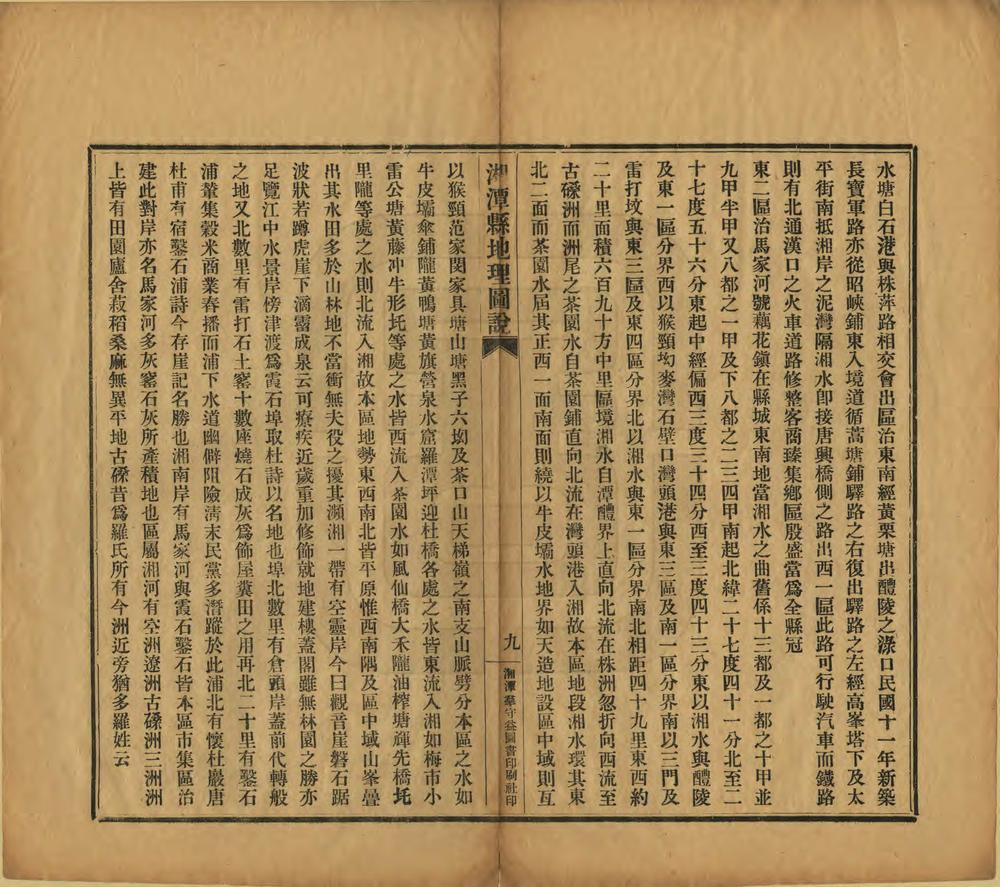 水塘白石港與株萍路相交會出區治東南經黃栗塘出醴陵之淥口民國十一年新築
長寶軍路亦從昭峽鋪東入境道循蒿塘鋪驛路之右復出驛路之左經高峯塔下及太
平街南抵湘岸之泥灣隔湘水卽接唐興橋側之路出西一區此路可行駛汽車而鐵路
則有北通漢口之火車道路修整客商臻集鄉區殷盛當爲全縣冠
東二區治馬家河號藕花鎭在縣城東南地當湘水之曲舊係十三都及一都之十甲並
九甲半甲又八都之一甲及下八都之二三四甲南起北緯二十七度四十一分北至二
十七度五十六分東起中經偏西三度三十四分西至三度四十三分東以湘水與醴陵
及東一區分界西以猴頸坳麥灣石壁口灣頭港與東三區及南一區分界南以三門及
雷打坟與東三區及東四區分界北以湘水與東一區分界南北相距四十九里東西約
二十里面積六百九十方中里區境湘水自潭醴界上直向北流在株洲忽折向西流至
古磉洲而洲尾之茶園水自茶園鋪直向北流在灣頭港入湘故本區地段湘水環其東
北二面而茶園水屆其正西一面南面則繞以牛皮壩水地界如天造地設區中域則亙
湘潭縣地理圖說
九
湘潭羣守益圖書印刷社印
以猴頸范家閔家具塘山塘黑子六坳及茶口山天梯嶺之南支山脈劈分本區之水如
牛皮壩傘鋪隴黃鴨塘黃旗營泉水窟羅潭坪迎杜橋各處之水皆東流入湘如梅市小
雷公塘黃藤冲牛形圫等處之水皆西流入茶園水如風仙橋大禾隴油榨塘禪先橋圫
里隴等處之水則北流入湘故本區地勢東西南北皆平原惟西南隅及區中域山峯疊
出其水田多於山林地不當衝無夫役之擾其瀕湘一帶有空靈岸今曰觀音崖磐石踞
波狀若蹲虎崖下滴霤成泉云可療疾近歲重加修飾就地建樓蓋閣雖無林園之勝亦
足覽江中水景岸傍津渡爲霞石埠取杜詩以名地也埠北數里有倉頭岸蓋前代轉般
之地又北數里有雷打石土窰十數座燒石成灰爲飾屋糞田之用再北二十里有鑿石
浦輦集穀米商業春播而浦下水道幽僻阻險淸末民黨多潛蹤於此浦北有懷杜巖唐
杜甫有宿鑿石浦詩今存崖記名勝也湘南岸有馬家河與霞石鑿石皆本區市集區治
建此對岸亦名馬家河多灰窰石灰所產積地也區屬湘河有空洲遼洲古磉洲三洲洲
上皆有田園廬舍菽稻桑麻無異平地古磉昔爲羅氏所有今洲近旁猶多羅姓云